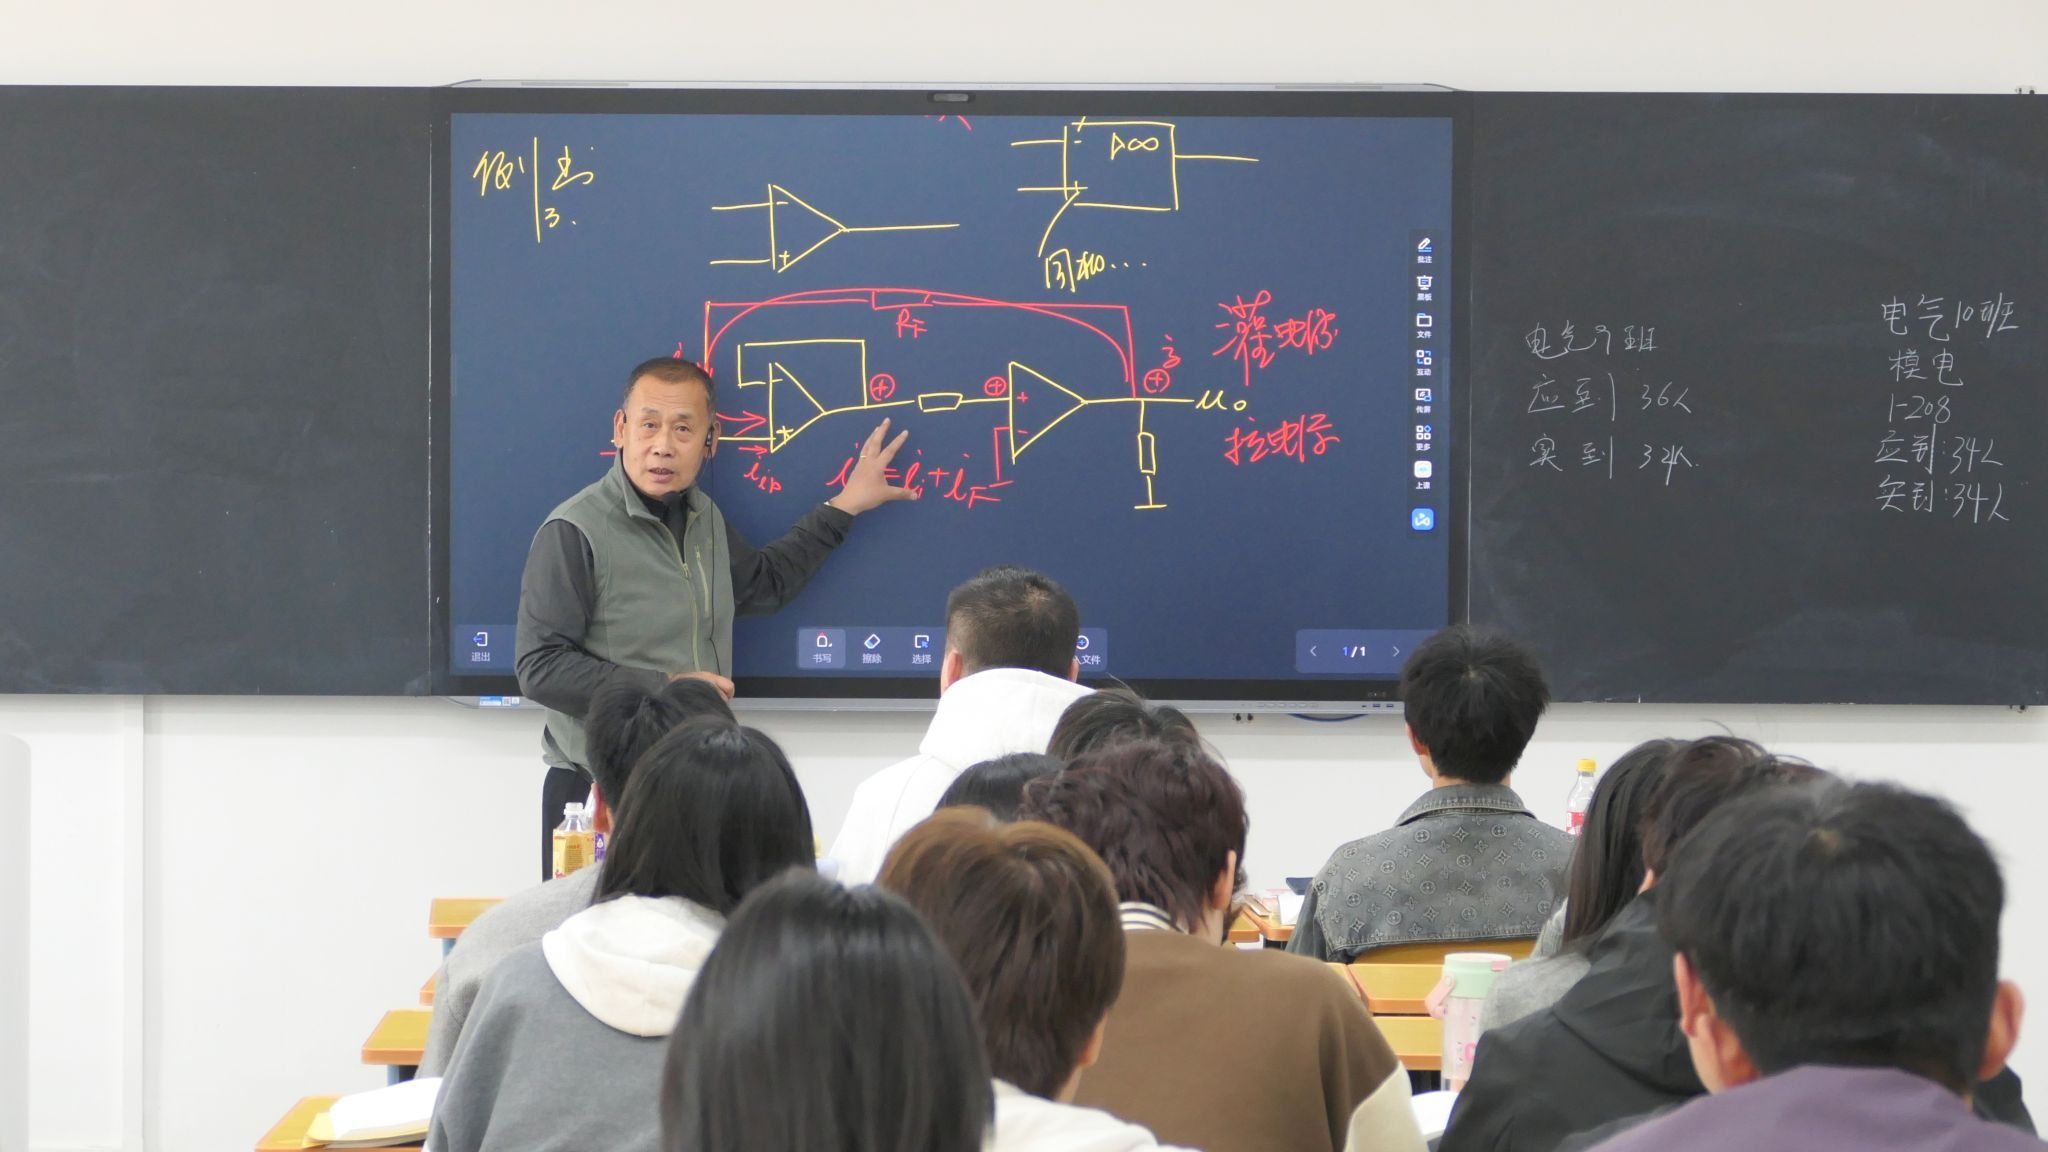 ▷∞
同相...
RF
灌电流
拉电流
uo
电气9班
应到 36人
实到 32人.
电气10班
模电
1-208
应到:34人
实到:34人
批注
黑板
文件
互动
传屏
更多
上课
退出
书写
擦除
选择
入文件
1/1